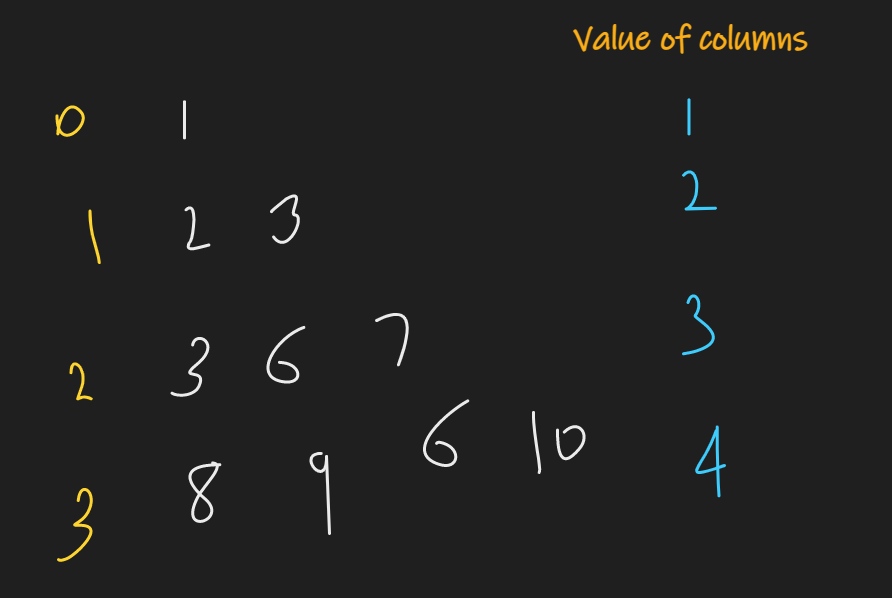 Value of columns
0 1 1
1 2 3 2
2 3 6 7 3
3 8 9 6 10 4